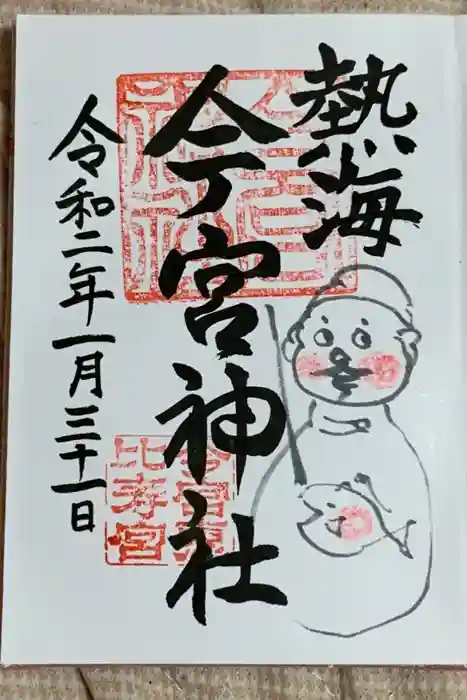 熱海
今宮神社
令和二年一月三十一日